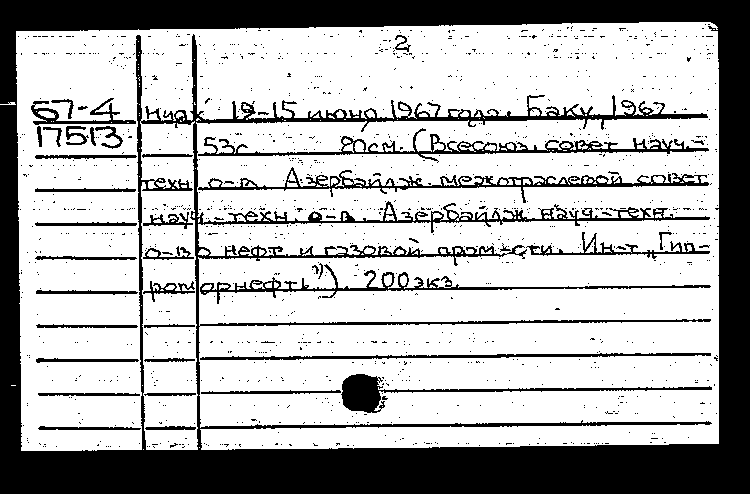 2
67-4
17513
ниях 12-15 июня 1967 года. Баку, 1967.
53с 20см. (Всесоюз. совет науч.-
техн. о-в. Азербайдж. межотраслевой совет
науч.-техн. о-в. Азербайдж. науч.-техн.
о-во нефт. и газовой пром-сти. Ин-т "Гип-
роморнефть"). 200 экз.